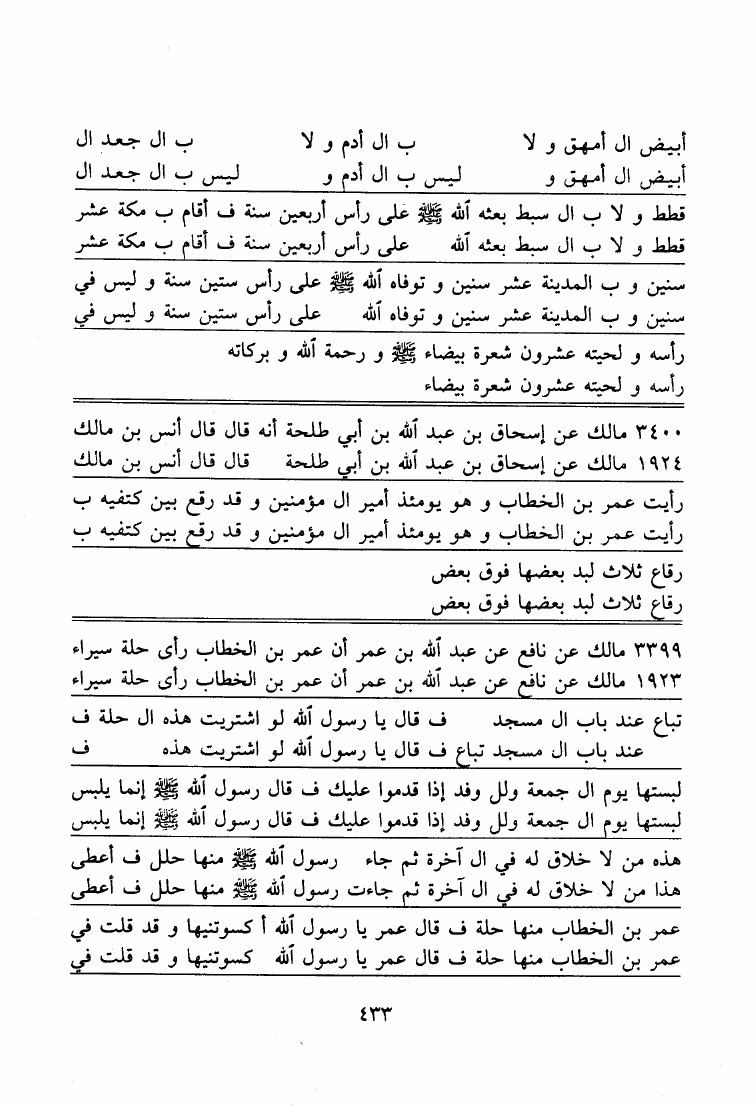 أبيض ال أمهق و لا ب ال أدم و لا ب ال جعد ال
أبيض ال أمهق و ليس ب ال أدم و ليس ب ال جعد ال
قطط و لا ب ال سبط بعثه ٱلله ﷺ على رأس أربعين سنة ف أقام ب مكة عشر
قطط و لا ب ال سبط بعثه ٱلله على رأس أربعين سنة ف أقام ب مكة عشر
سنين و ب المدينة عشر سنين و توفاه ٱلله ﷺ على رأس ستين سنة و ليس في
سنين و ب المدينة عشر سنين و توفاه ٱلله على رأس ستين سنة و ليس في
رأسه و لحيته عشرون شعرة بيضاء ﷺ و رحمة ٱلله و بركاته
رأسه و لحيته عشرون شعرة بيضاء
٣٤٠٠ مالك عن إسحاق بن عبد ٱلله بن أبي طلحة أنه قال قال أنس بن مالك
١٩٢٤ مالك عن إسحاق بن عبد ٱلله بن أبي طلحة قال قال أنس بن مالك
رأيت عمر بن الخطاب و هو يومئذ أمير ال مؤمنين و قد رقع بين كتفيه ب
رأيت عمر بن الخطاب و هو يومئذ أمير ال مؤمنين و قد رقع بين كتفيه ب
رقاع ثلاث لبد بعضها فوق بعض
رقاع ثلاث لبد بعضها فوق بعض
٣٣٩٩ مالك عن نافع عن عبد ٱلله بن عمر أن عمر بن الخطاب رأى حلة سيراء
١٩٢٣ مالك عن نافع عن عبد ٱلله بن عمر أن عمر بن الخطاب رأى حلة سيراء
تباع عند باب ال مسجد ف قال يا رسول ٱلله لو اشتريت هذه ال حلة ف
عند باب ال مسجد تباع ف قال يا رسول ٱلله لو اشتريت هذه ف
لبستها يوم ال جمعة ولل وفد إذا قدموا عليك ف قال رسول ٱلله ﷺ إنما يلبس
لبستها يوم ال جمعة ولل وفد إذا قدموا عليك ف قال رسول ٱلله ﷺ إنما يلبس
هذه من لا خلاق له في ال آخرة ثم جاء رسول ٱلله ﷺ منها حلل ف أعطى
هذا من لا خلاق له في ال آخرة ثم جاءت رسول ٱلله ﷺ منها حلل ف أعطى
عمر بن الخطاب منها حلة ف قال عمر يا رسول ٱلله أ كسوتنيها و قد قلت في
عمر بن الخطاب منها حلة ف قال عمر يا رسول ٱلله كسوتنيها و قد قلت في
٤٣٣